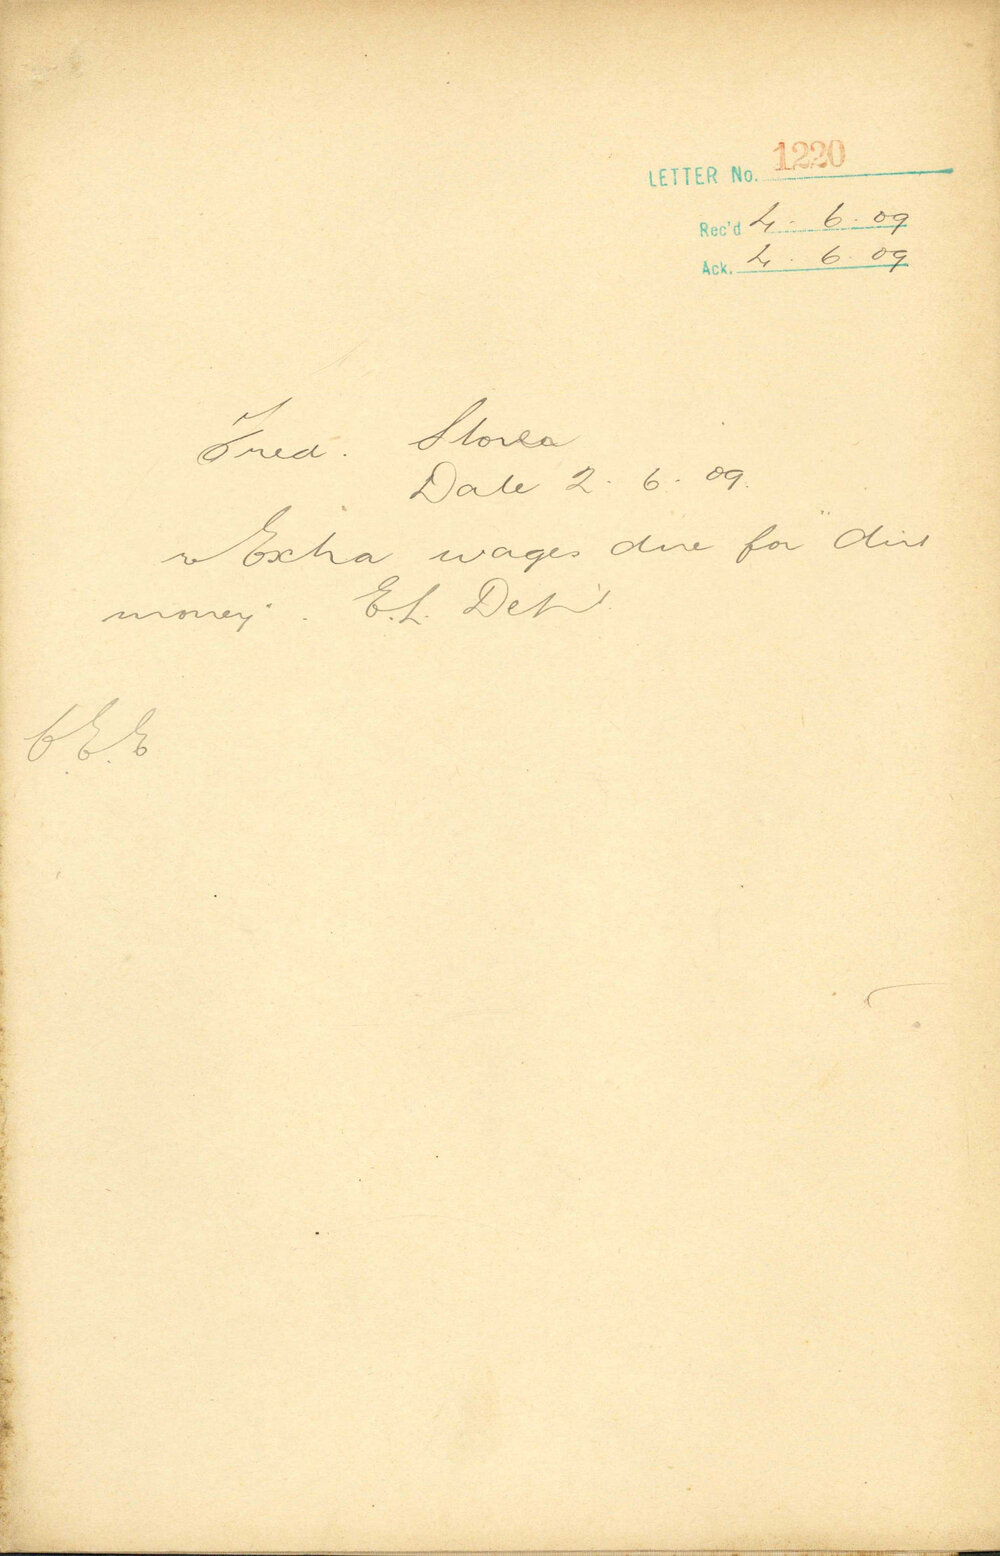 LETTER No. 1220
Rec'd 4. 6. 09
Ack. 4. 6. 09
Fred. Storea
Date 2. 6. 09.
r Extra wages due for "dirt
money". E.L. Dept.
C.E.E